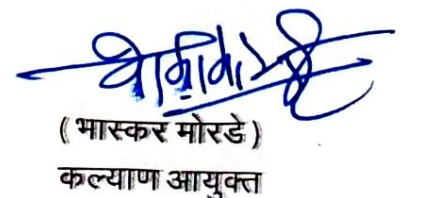 ( भास्कर मोरडे )
कल्याण आयुक्त